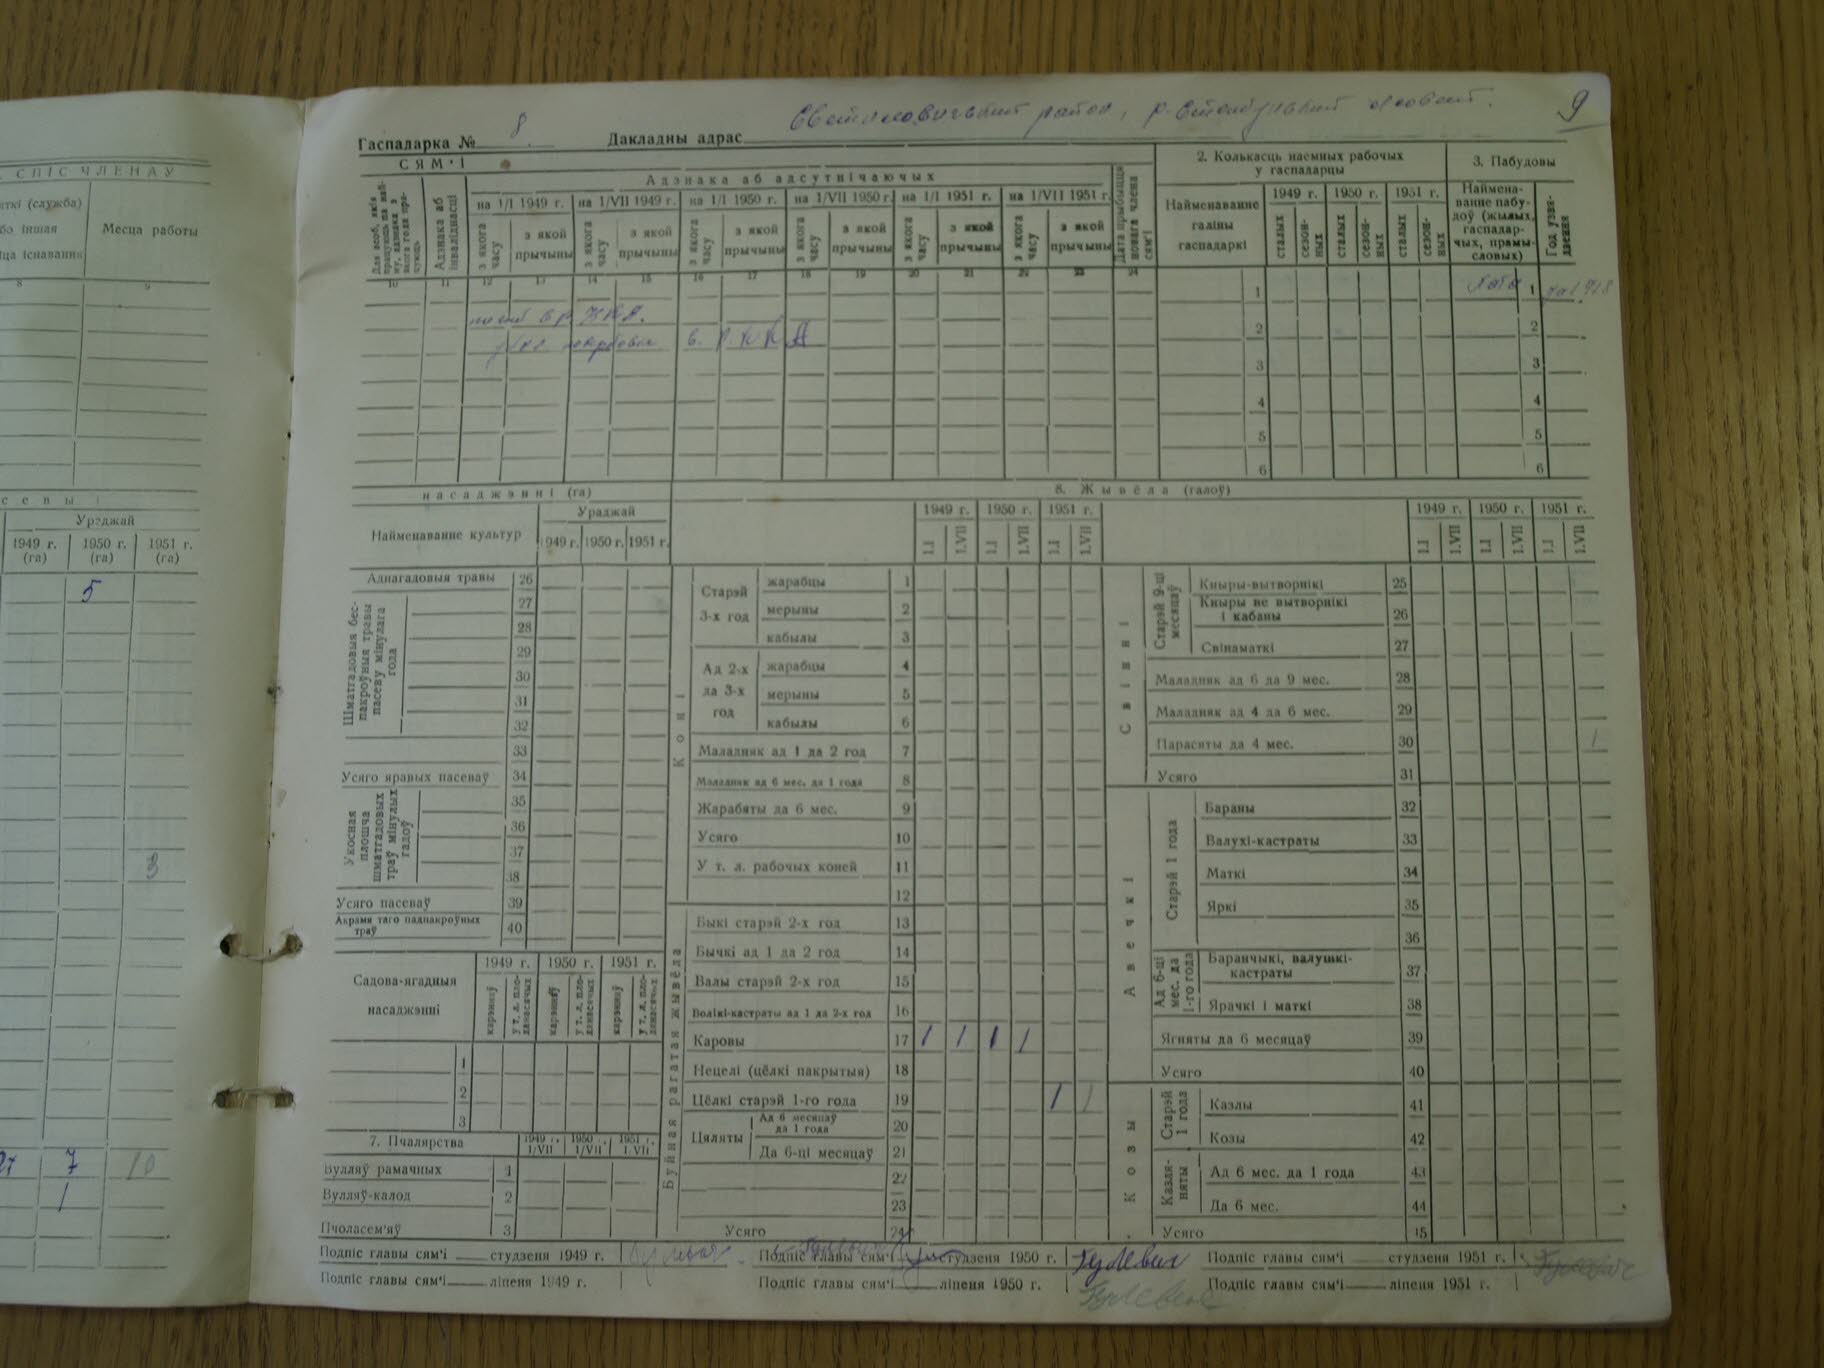 9
Гаспадарка № 8 Дакладны адрас
СПІС ЧЛЕНАЎ
СЯМ'І
аткі (служба)
бо іншая
іца існавання
Месца работы
8 9
Для асоб, якія працуюць па найму, адзнака з якога года працуюць
Адзнака аб інваліднасці
Адзнака аб адсутнічаючых
на 1/I 1949 г. на 1/VII 1949 г. на 1/I 1950 г. на 1/VII 1950 г. на 1/I 1951 г. на 1/VII 1951 г.
з якога часу з якой прычыны з якога часу з якой прычыны з якога часу з якой прычыны з якога часу з якой прычыны з якога часу з якой прычыны з якога часу з якой прычыны
Дата прыбыцця новага члена сям'і
10 11 12 13 14 15 16 17 18 19 20 21 22 23 24
2. Колькасць наемных рабочых у гаспадарцы
Найменаванне галіны гаспадаркі
1949 г. 1950 г. 1951 г.
сталых сезонных сталых сезонных сталых сезонных
1
2
3
4
5
6
3. Пабудовы
Найменаванне пабудоў (жылых, гаспадарчых, прамысловых)
Год узвядзення
Хата 1
2
3
4
5
6
севы і
Ураджай
1949 г. (га) 1950 г. (га) 1951 г. (га)
5
3
7 10
1
насаджэнні (га)
Найменаванне культур
Ураджай
1949 г. 1950 г. 1951 г.
Аднагадовыя травы 26
Шматгадовыя беспакроўныя травы пасеву мінулага года
27
28
29
30
31
32
33
Усяго яравых пасеваў 34
Укосная плошча шматгадовых траў мінулых гадоў
35
36
37
38
Усяго пасеваў 39
Акрамя таго падпакроўных траў 40
Садова-ягадныя насаджэнні
1949 г. 1950 г. 1951 г.
карэнняў у т. л. пладанасячых карэнняў у т. л. пладанасячых карэнняў у т. л. пладанасячых
1
2
3
7. Пчалярства 1949 г. 1/VII 1950 г. 1/VII 1951 г. 1/VII
Вулляў рамачных 1
Вулляў-калод 2
Пчоласем'яў 3
8. Жывёла (галоў)
1949 г. 1950 г. 1951 г.
1.I 1.VII 1.I 1.VII 1.I 1.VII
Коні
Старэй 3-х год
жарабцы 1
мерыны 2
кабылы 3
Ад 2-х да 3-х год
жарабцы 4
мерыны 5
кабылы 6
Маладняк ад 1 да 2 год 7
Маладняк ад 6 мес. да 1 года 8
Жарабяты да 6 мес. 9
Усяго 10
У т. л. рабочых коней 11
12
Буйная рагатая жывёла
Быкі старэй 2-х год 13
Бычкі ад 1 да 2 год 14
Валы старэй 2-х год 15
Волікі-кастраты ад 1 да 2-х год 16
Каровы 17 1 1 1 1
Нецелі (цёлкі пакрытыя) 18
Цёлкі старэй 1-го года 19 1 1
Цяляты
Ад 6 месяцаў да 1 года 20
Да 6-ці месяцаў 21
22
23
Усяго 24
1949 г. 1950 г. 1951 г.
1.I 1.VII 1.I 1.VII 1.I 1.VII
Свінні
Старэй 9-ці месяцаў
Кныры-вытворнікі 25
Кныры не вытворнікі і кабаны 26
Свінаматкі 27
Маладняк ад 6 да 9 мес. 28
Маладняк ад 4 да 6 мес. 29
Парасяты да 4 мес. 30 1
Усяго 31
Авечкі
Старэй 1 года
Бараны 32
Валухі-кастраты 33
Маткі 34
Яркі 35
36
Ад 6-ці мес. да 1-го года
Баранчыкі, валушкі-кастраты 37
Ярачкі і маткі 38
Ягняты да 6 месяцаў 39
Усяго 40
Козы
Старэй 1 года
Казлы 41
Козы 42
Казляняты
Ад 6 мес. да 1 года 43
Да 6 мес. 44
Усяго 45
Подпіс главы сям'і студзеня 1949 г. Подпіс главы сям'і студзеня 1950 г. Гулевич Подпіс главы сям'і студзеня 1951 г. Гулевич
Подпіс главы сям'і ліпеня 1949 г. Подпіс главы сям'і ліпеня 1950 г. Гулевич Подпіс главы сям'і ліпеня 1951 г.